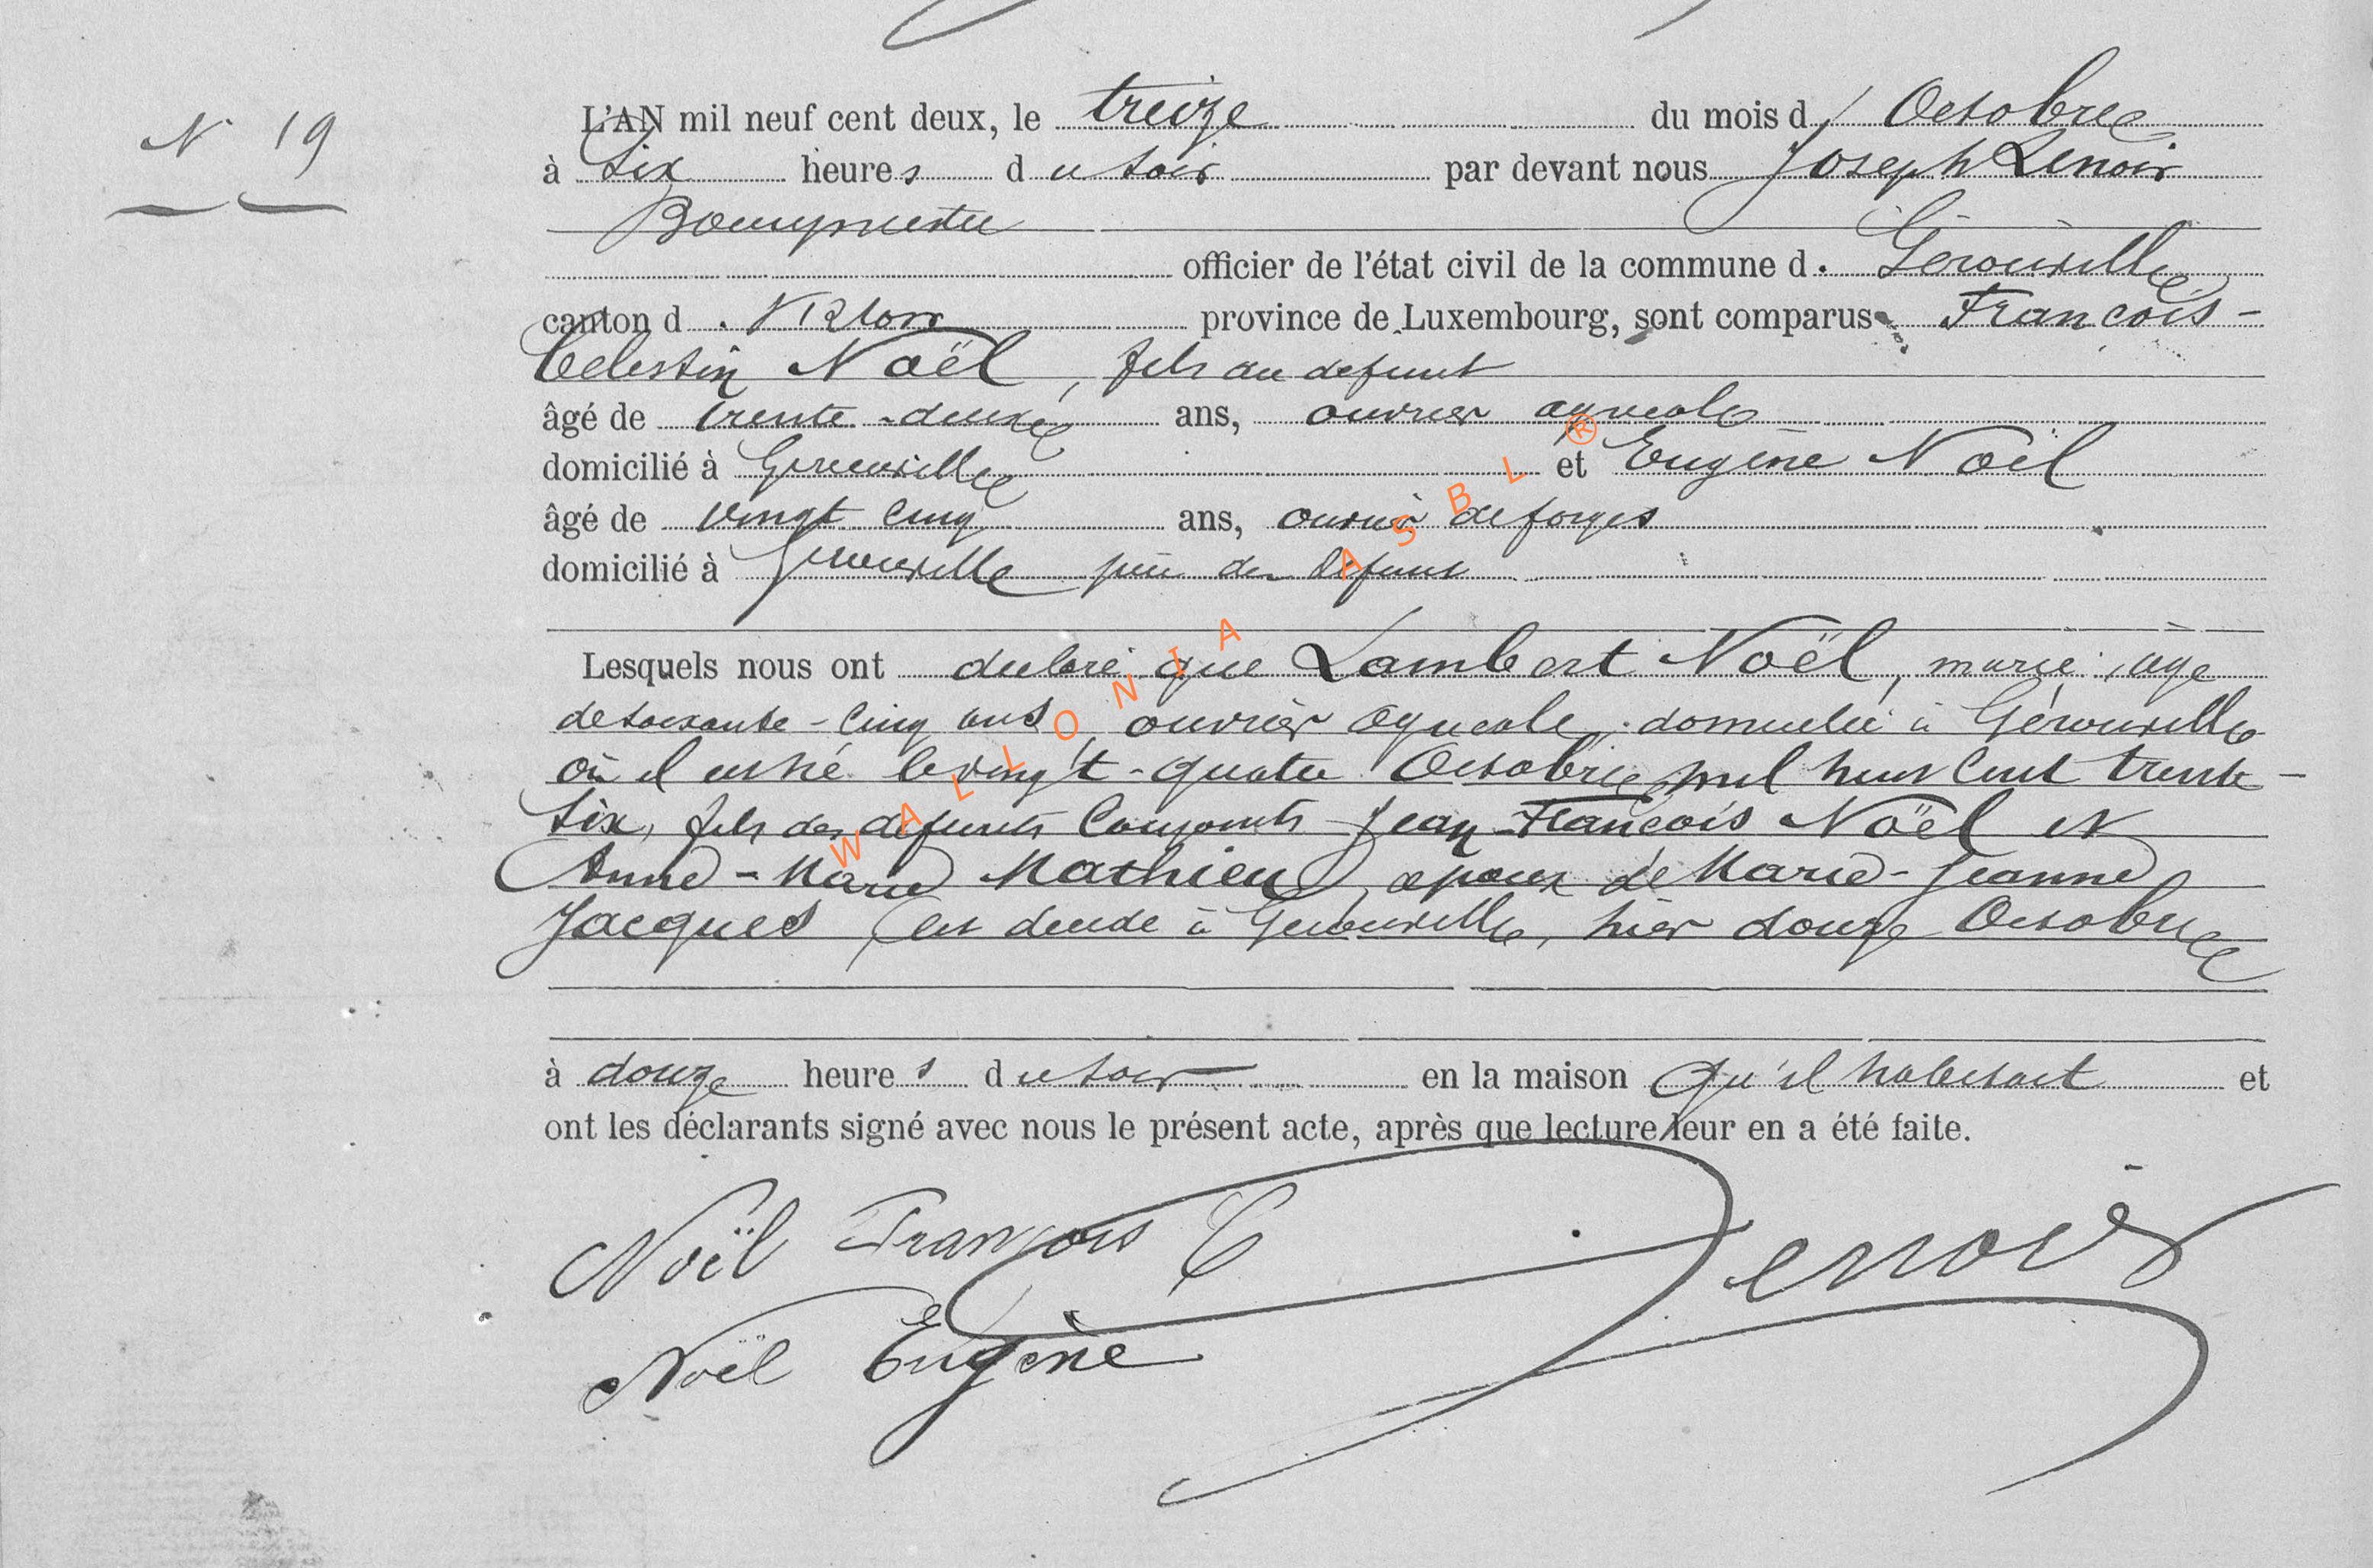 N° 19
L'AN mil neuf cent deux, le treize du mois d' Octobre
à six heures du soir par devant nous Joseph Lenoir
Bourgmestre
officier de l'état civil de la commune d. Gérouville
canton d. Virton province de Luxembourg, sont comparus François-
Celestin Noël, fils du défunt
âgé de trente-deux ans, ouvrier agricole
domicilié à Gérouville et Eugène Noël
âgé de vingt cinq ans, ouvrier de forges
domicilié à Gérouville du défunt
Lesquels nous ont déclaré que Lambert Noël, marié, âgé
de soixante-cinq ans, ouvrier agricole, domicilié à Gérouville
où il est né le vingt-quatre Octobre mil huit cent trente-
six, fils des défunts conjoints Jean-François Noël et
Anne-Marie Mathieu, époux de Marie-Jeanne
Jacques, est décédé à Gérouville, hier douze Octobre
à douze heures du soir en la maison qu'il habitait et
ont les déclarants signé avec nous le présent acte, après que lecture leur en a été faite.
Noël François C Lenoir
Noël Eugène
WALLONIA ASBL ®